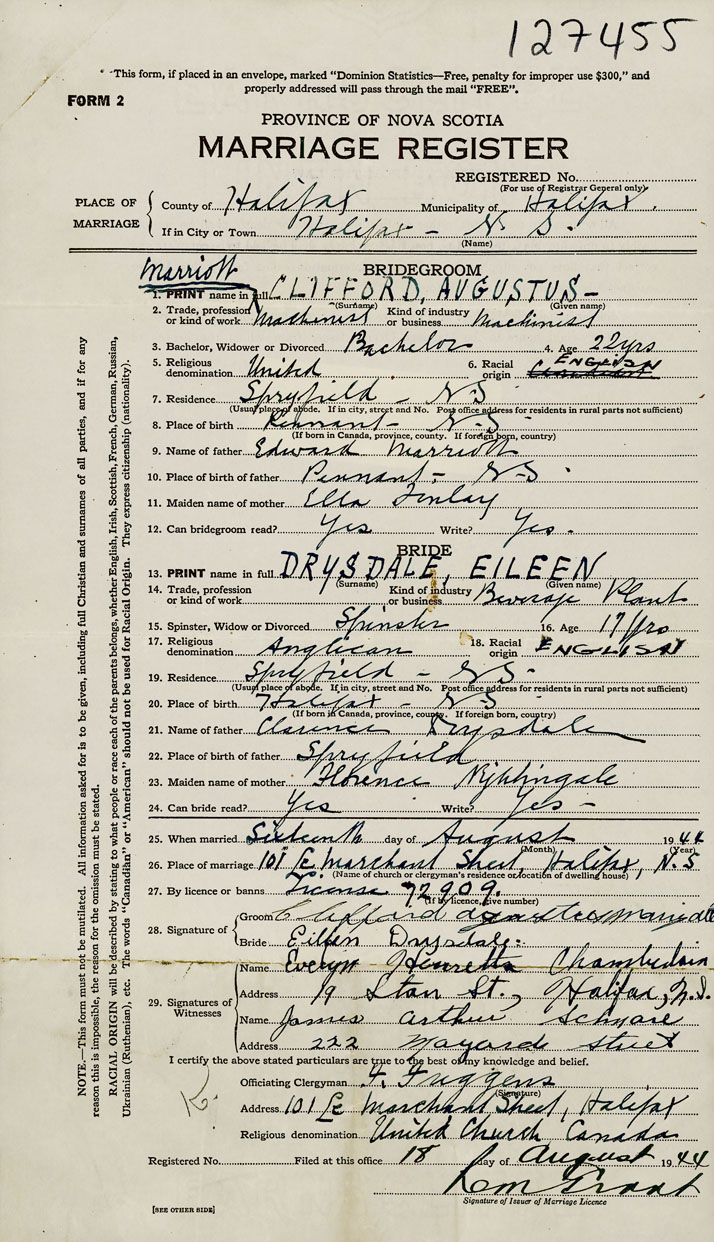 127455
"This form, if placed in an envelope, marked "Dominion Statistics—Free, penalty for improper use $300," and
properly addressed will pass through the mail "FREE".
FORM 2
PROVINCE OF NOVA SCOTIA
MARRIAGE REGISTER
REGISTERED No.
(For use of Registrar General only)
PLACE OF MARRIAGE
County of Halifax Municipality of Halifax.
If in City or Town Halifax - N S.
(Name)
Marriott
BRIDEGROOM
1. PRINT name in full CLIFFORD, AUGUSTUS-
(Surname) (Given name)
2. Trade, profession or kind of work Machinist Kind of industry or business Machinist
3. Bachelor, Widower or Divorced Bachelor 4. Age 22yrs
5. Religious denomination United 6. Racial origin ENGLISH
7. Residence Spryfield - N-S
(Usual place of abode. If in city, street and No. Post office address for residents in rural parts not sufficient)
8. Place of birth Pennant- N-S-
(If born in Canada, province, county. If foreign born, country)
9. Name of father Edward Marriott
10. Place of birth of father Pennant- N-S.
11. Maiden name of mother Ella Finlay
12. Can bridegroom read? Yes Write? Yes.
BRIDE
13. PRINT name in full DRYSDALE, EILEEN
(Surname) (Given name)
14. Trade, profession or kind of work Kind of industry or business Beverage Plant
15. Spinster, Widow or Divorced Spinster 16. Age 17yrs
17. Religious denomination Anglican 18. Racial origin ENGLISH
19. Residence Spryfield - N-S-
(Usual place of abode. If in city, street and No. Post office address for residents in rural parts not sufficient)
20. Place of birth Halifax - N-S
(If born in Canada, province, county. If foreign born, country)
21. Name of father Clarence Drysdale
22. Place of birth of father Spryfield
23. Maiden name of mother Florence Nightingale
24. Can bride read? Yes Write? Yes-
25. When married Sixteenth day of August 1944
(Month) (Year)
26. Place of marriage 101 Le Marchant Street, Halifax, N.S
(Name of church or clergyman's residence or location of dwelling house)
27. By licence or banns License 72909.
(If by licence, give number)
28. Signature of
Groom Clifford Marriott
Bride Eileen Drysdale.
29. Signatures of Witnesses
Name Evelyn Henretta Chamberlain
Address 19 Starr St., Halifax, N.S.
Name James Arthur Schnare
Address 222 Maynard Street
I certify the above stated particulars are true to the best of my knowledge and belief.
Officiating Clergyman F. Friggens
(Signature)
Address 101 Le Marchant Street, Halifax
Religious denomination United Church Canada
Registered No. Filed at this office 18 day of August 1944
Signature of Issuer of Marriage Licence
[SEE OTHER SIDE]
NOTE.—This form must not be mutilated. All information asked for is to be given, including full Christian and surnames of all parties, and if for any
reason this is impossible, the reason for the omission must be stated.
RACIAL ORIGIN will be described by stating to what people or race each of the parents belongs, whether English, Irish, Scottish, French, German, Russian,
Ukrainian (Ruthenian), etc. The words "Canadian" or "American" should not be used for Racial Origin. They express citizenship (nationality).